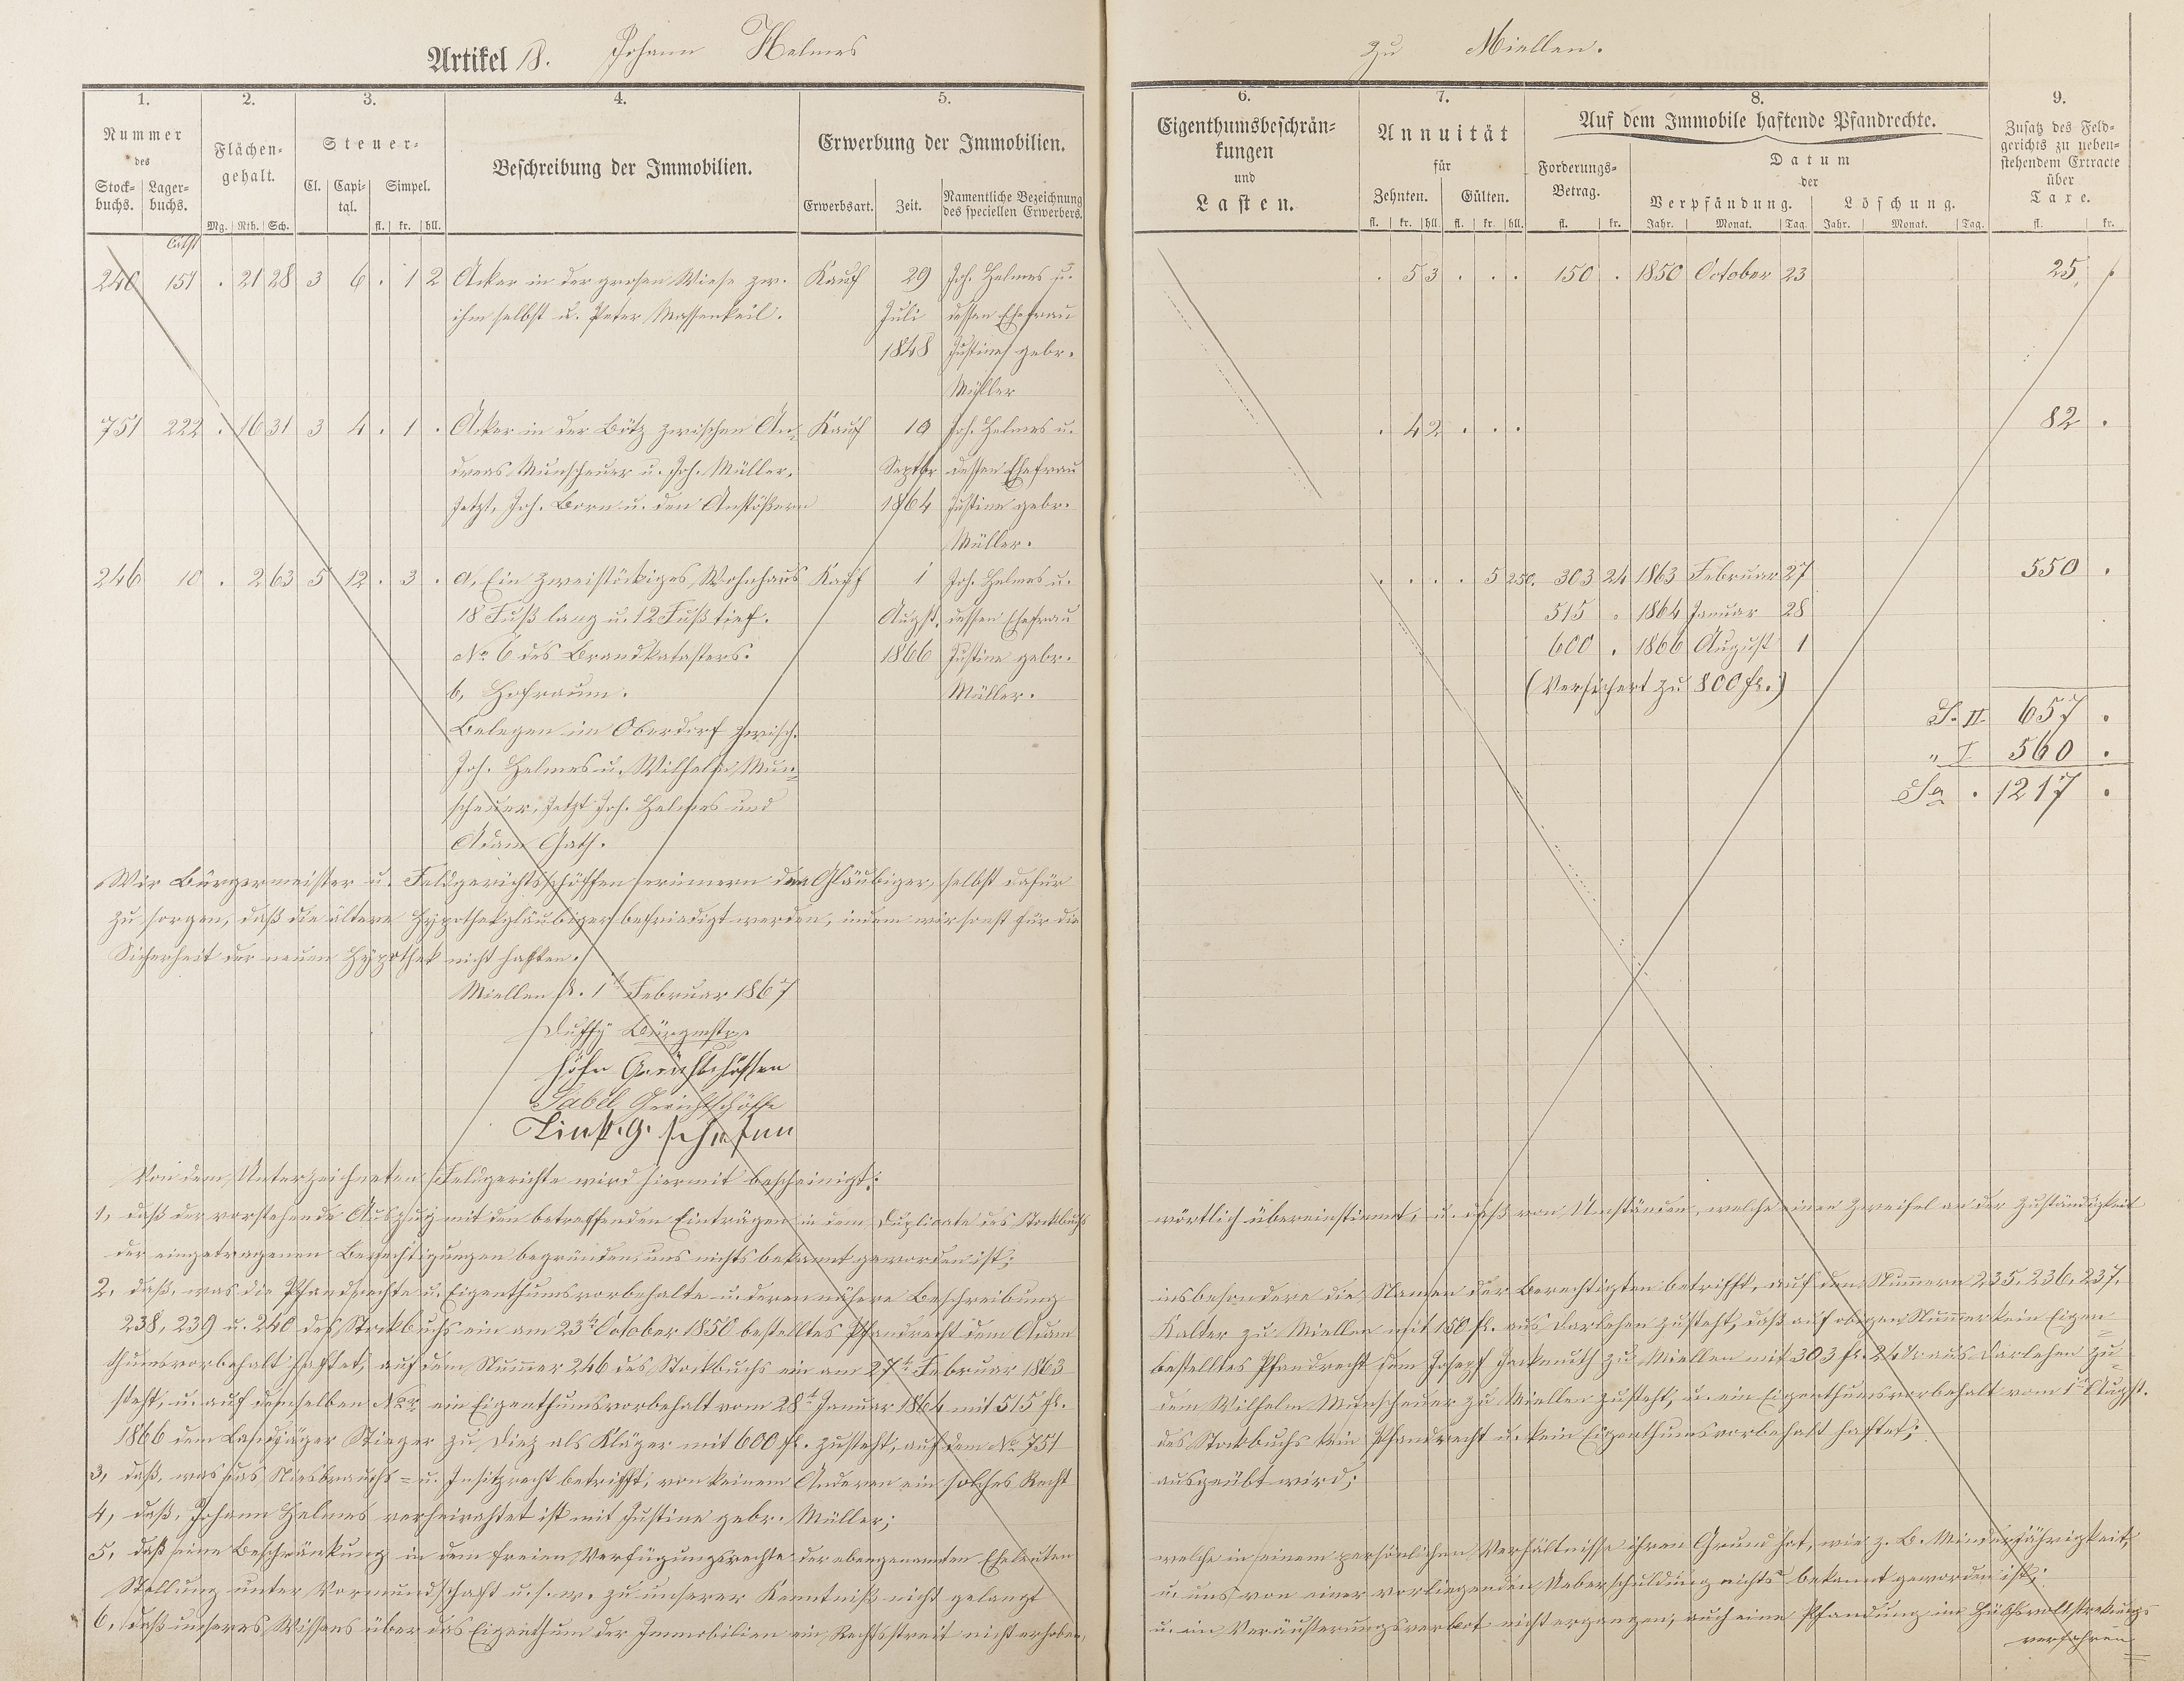 Artikel 18. Johann Helmes
zu Miellen.
1.
2.
3.
4.
5.
6.
7.
8.
9.
Nummer
des
Stock-
buchs.
Lager-
buchs.
Flächen-
gehalt.
Mg. Rth. Sch.
Steuer-
Cl.
Capi-
tal.
Simpel.
fl. kr. hll.
Beschreibung der Immobilien.
Erwerbung der Immobilien.
Erwerbsart.
Zeit.
Namentliche Bezeichnung
des speciellen Erwerbers.
Eigenthumsbeschrän-
kungen
und
Lasten.
Annuität
für
Zehnten. Gülten.
fl. kr. hll. fl. kr. hll.
Auf dem Immobile haftende Pfandrechte.
Forderungs-
Betrag.
fl. kr.
Datum
der
Verpfändung. Löschung.
Jahr. Monat. Tag. Jahr. Monat. Tag.
Zusatz des Feld-
gerichts zu neben-
stehendem Extracte
über
Taxe.
fl. kr.
240 151 . 21 28 3 6 . 1 2 Acker in der grosen Wiese zw. Kauf 29 Joh. Helmes u.
ihm selbst u. Peter Massenkeil. Juli dessen Ehefrau
1848 Justine gebr.
Müller
751 222 . 16 31 3 4 . 1 . Acker in der Bötz zwischen An- Kauf 19 Joh. Helmes u.
dreas Munscheuer u. Joh. Müller, Septbr dessen Ehefrau
jetzt, Joh. Born u. den Anstößern 1864 Justine gebr.
Müller.
246 10 . 2 63 5 12 . 3 . a, Ein zweistöckiges Wohnhaus Kauf 1 Joh. Helmes u.
18 Fuß lang u. 12 Fuß tief. Augst. dessen Ehefrau
No 6 des Brandkatasters. 1866 Justine gebr.
b, Hofraum. Müller.
Belegen im Oberdorf zwisch.
Joh. Helmes u. Wilhelm Mun-
scheuer, jetzt Joh. Helmes und
Adam Gath.
. 5 3 . . . 150 . 1850 October 23 25 .
. 4 2 . . . 82 .
. . . . 5 250. 303 24 1863 Februar 27 550 .
515 . 1864 Januar 28
600 . 1866 August 1
(Versichert zu 800 fl.)
S. II 657 .
" I 560 .
Sa . 1217 .
Wir Bürgermeister u. Feldgerichtsschöffen erinnern den Gläubiger, selbst dafür
zu sorgen, daß die ältere Hypothekgläubiger befriedigt werden, indem wir sonst für die
Sicherheit der neuen Hypothek nicht haften.
Miellen d. 1t Februar 1867
Bürgmstr.
Gerichtschöffen
Gabel Gerichtschöffe
Von dem Unterzeichneten Feldgerichte wird hiermit bescheinigt:
1, daß der vorstehende Auszug mit den betreffenden Einträgen in dem Duplicate des Stockbuchs wörtlich übereinstimmt, u. daß von Umständen, welche einen Zweifel an der Zuständigkeit
der eingetragenen Berechtigungen begründen, uns nichts bekannt geworden ist;
2, daß, was die Pfandrechte u. Eigenthumsvorbehalte u. deren nähere Beschreibung insbesondere die Namen der Berechtigten betrifft, auf den Nummern 235, 236, 237,
238, 239 u. 240 des Stockbuchs ein am 23t October 1850 bestelltes Pfandrecht dem Adam Kalter zu Miellen mit 150 fl. aus Darlehen zusteht, daß auf obigen Nummer kein Eigen-
thumsvorbehalt haftet, auf dem Nummer 246 des Stockbuchs ein am 27t Februar 1863 bestelltes Pfandrecht dem Josepf zu Miellen mit 303 fl. 24 kr aus Darlehen zu-
steht, u. auf demselben Nr. ein Eigenthumsvorbehalt vom 28t Januar 1864 mit 515 fl. dem Wilhelm Munscheuer zu Miellen zusteht, u. ein Eigenthumsvorbehalt vom 1t Augst.
1866 dem Landjäger Stieger zu Diez als Kläger mit 600 fl. zusteht, auf dem No 751 des Stockbuchs kein Pfandrecht u. kein Eigenthumsvorbehalt haftet;
3, daß, was das Niesbrauchs- u. Insitzrecht betrifft, von keinem Anderen ein solches Recht ausgeübt wird;
4, daß, Johann Helmes verheirahtet ist mit Justine gebr. Müller;
5, daß eine Beschränkung in dem freien Verfügungsrechte der ebengenannten Eheleuten welche in seinem persönlichen Verhältnisse ihren Grund hat, wie z. B. Minderjährigkeit,
Stellung unter Vormundschaft u. s. w. zu unserer Kenntniß nicht gelangt u. uns von einer vorliegenden Ueberschuldung nichts bekannt geworden ist;
6, daß unseres Wissens über das Eigenthum der Immobilien ein Rechtsstreit nicht erhoben, u. ein Veräußerungsverbot nicht ergangen, auch eine Pfandung im Hülfsvollstrekungs-
verfahren